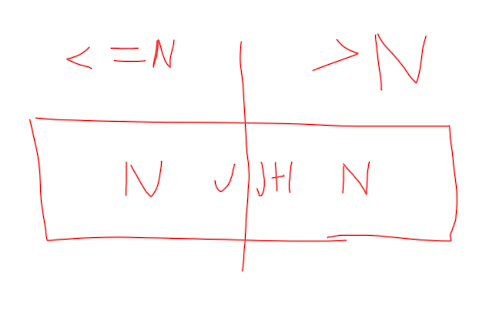 <=N >N
N J J+1 N